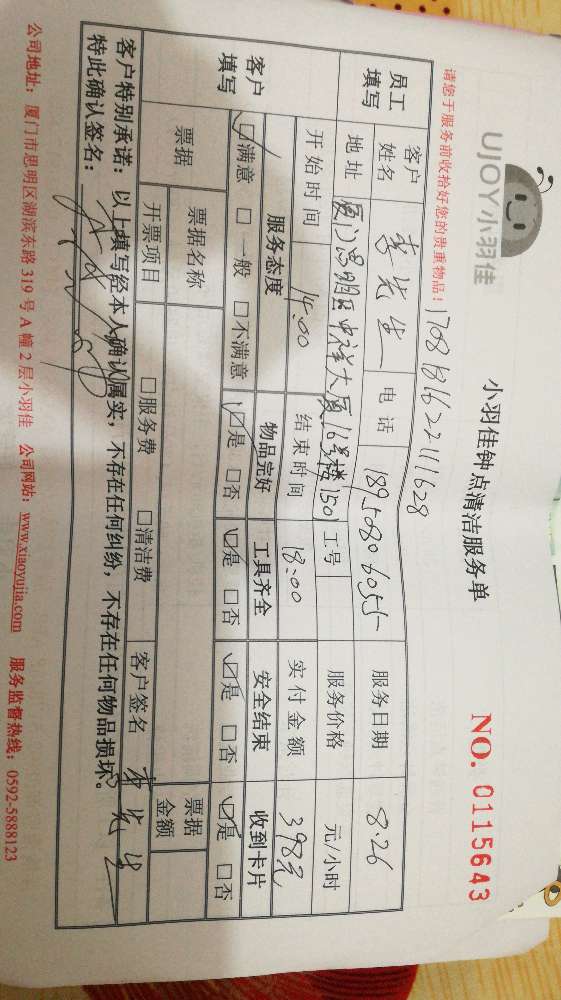 UJOY小羽佳
小羽佳钟点清洁服务单
NO. 0115643
请您于服务前收拾好您的贵重物品！
170818162211628
员工填写 客户姓名 李先生 电话 18950806055 服务日期 8.26
地址 厦门思明区中祥大厦16号楼1501 工号 服务价格 元/小时
开始时间 14:00 结束时间 18:00 实付金额 398元
客户填写 服务态度 物品完好 工具齐全 安全结束 收到卡片
☑满意 □一般 □不满意 ☑是 □否 ☑是 □否 ☑是 □否 ☑是 □否
票据 票据名称 票据金额
开票项目 □服务费 □清洁费 客户签名 李先生
客户特别承诺：以上填写经本人确认属实，不存在任何纠纷，不存在任何物品损坏。
特此确认签名：
公司地址：厦门市思明区湖滨东路 319 号 A 幢 2 层小羽佳 公司网站：www.xiaoyujia.com 服务监督热线：0592-5888123